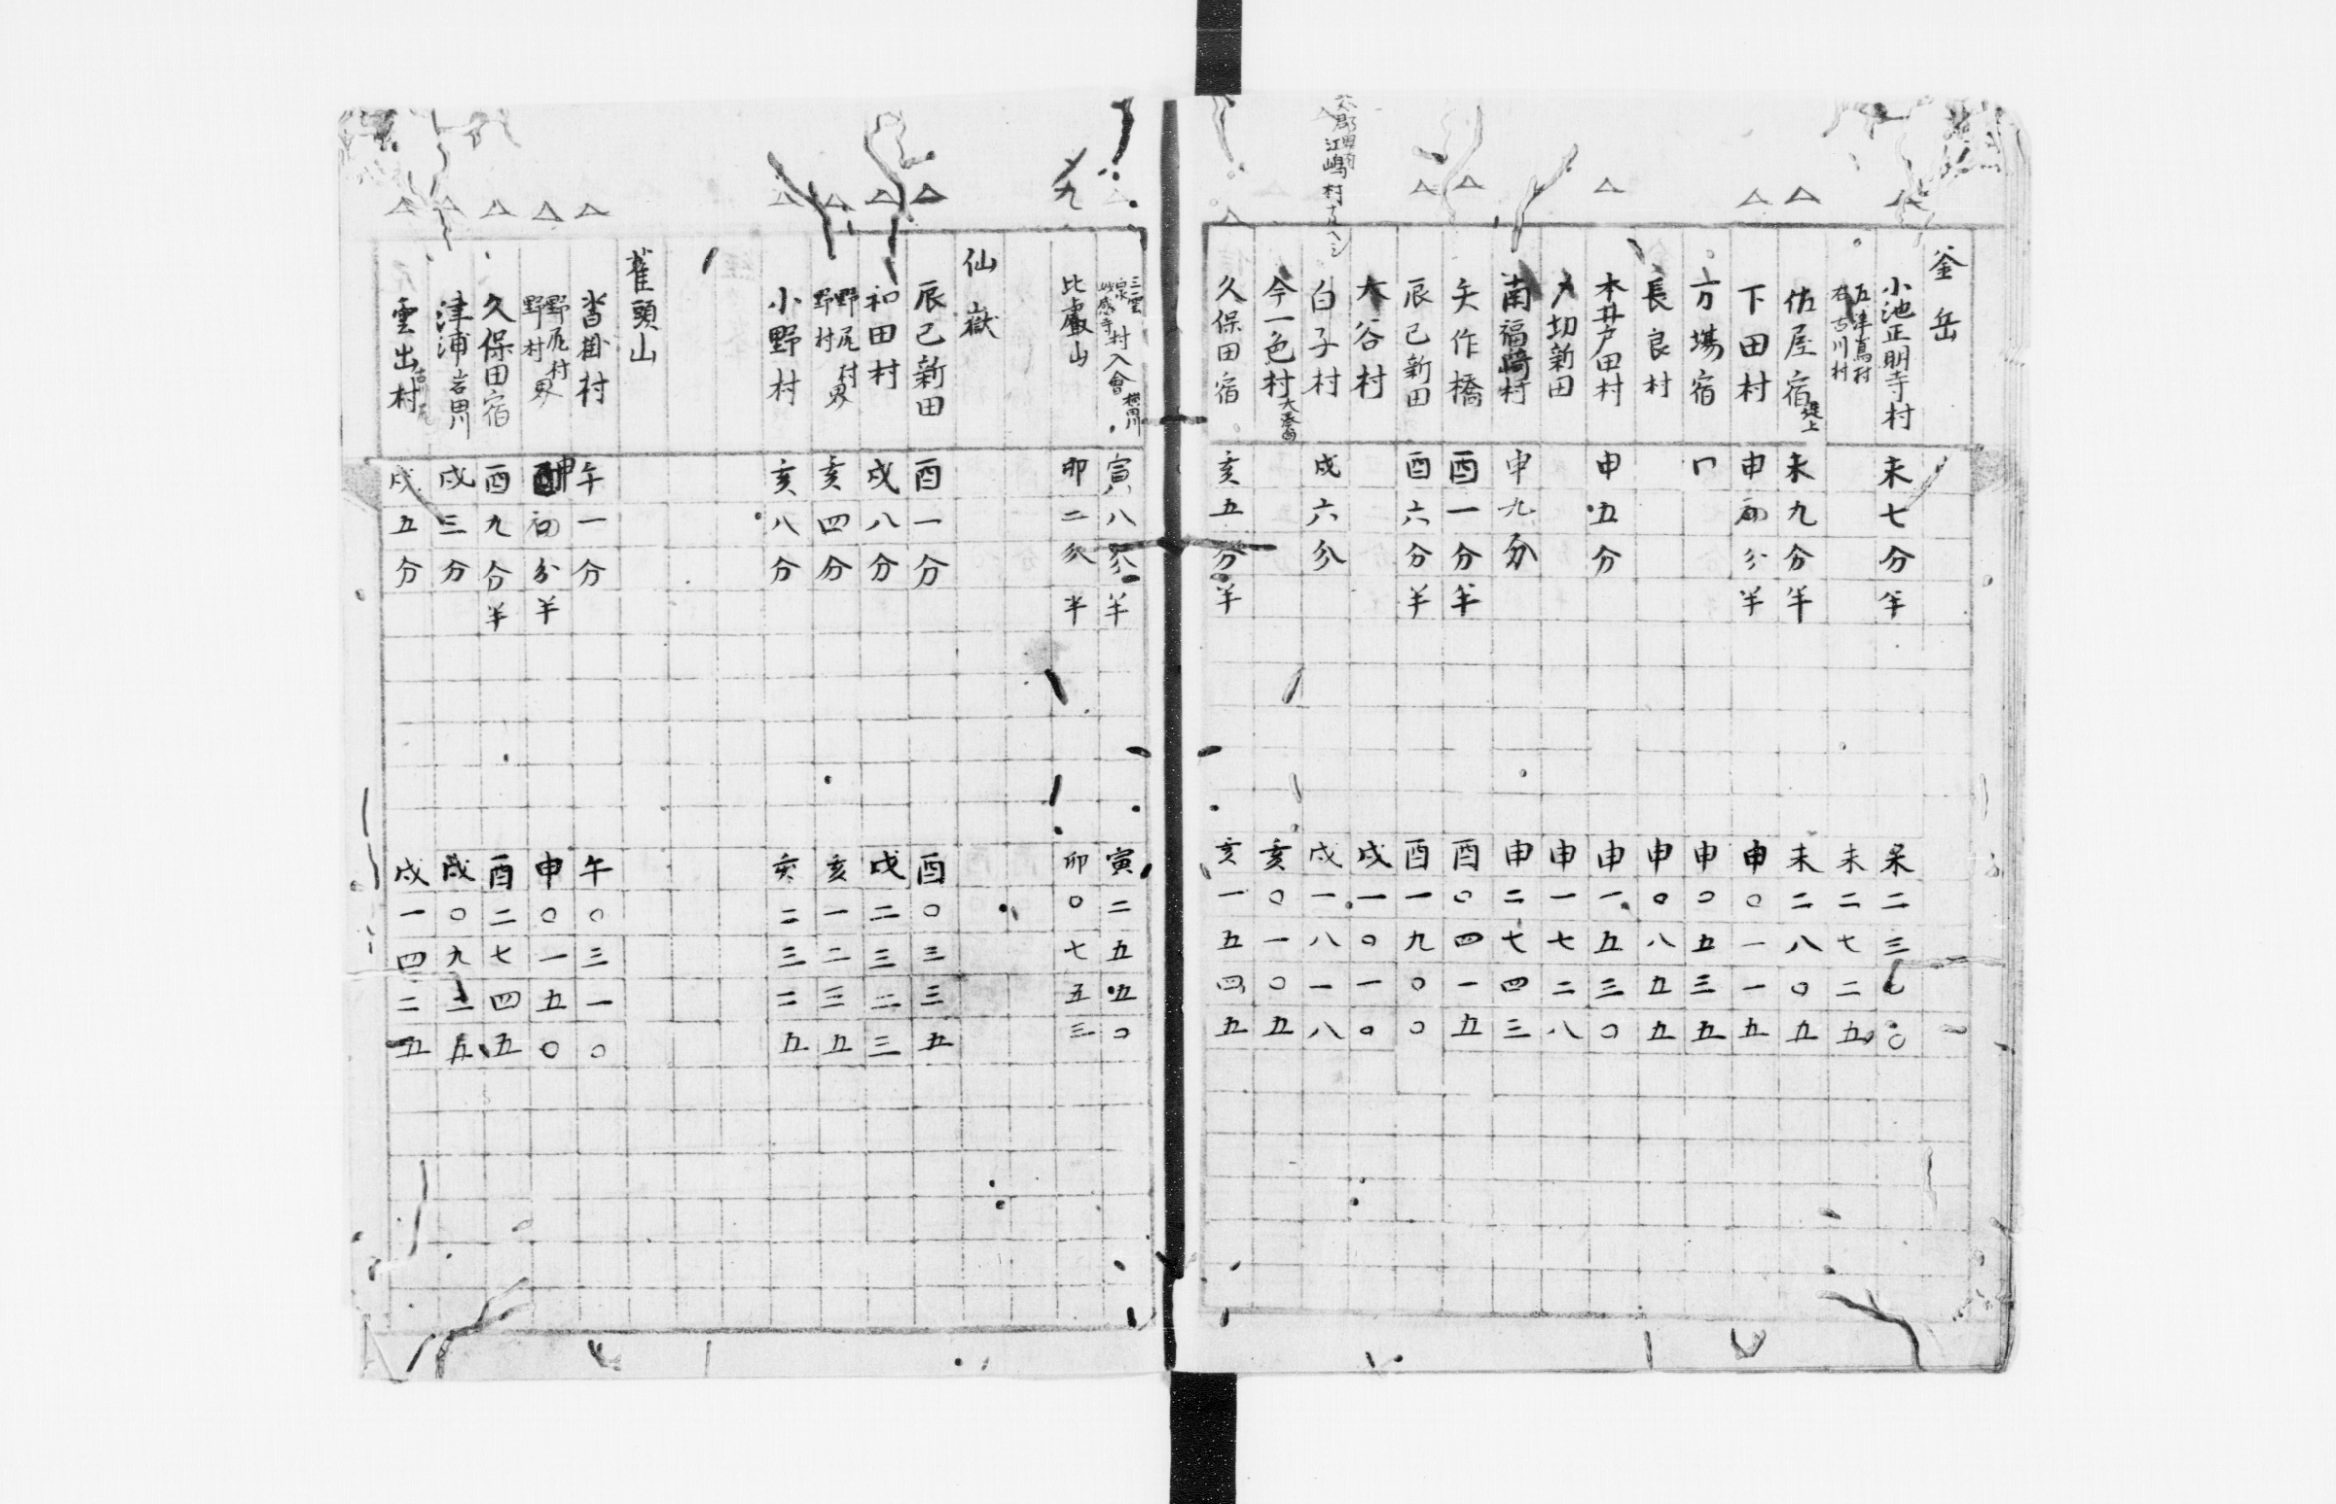 釜岳
小池正明寺村 未七分半 未二三
五津嶌村 右古川村 未二七二五
佐屋宿堤上 未九分半 未二八〇五
下田村 申初分半 申〇一一五
方場宿 申〇五三五
長良村 申〇八五五
本井戸田村 申五分 申一五三〇
戸切新田 申一七二八
南福﨑村 申九分 申二七四三
矢作橋 酉一分半 酉〇四一五
辰己新田 酉六分半 酉一九〇〇
大谷村 戌一〇一〇
江嶋村
白子村 戌六分 戌一八一八
今一色村 亥〇一〇五
久保田宿 亥五分半 亥一五四五
三雲 妙感寺 村入會横田川 寅八分半 寅二五五〇
九
比叡山 卯二分半 卯〇七五三
仙嶽
辰己新田 酉一分 酉〇三三五
和田村 戌八分 戌二三二三
野尻村 野村 界 亥四分 亥一二三五
小野村 亥八分 亥二三二五
雀頭山
沓掛村 午一分 午〇三一〇
野尻村 野村 界 申初分半 申〇一五〇
久保田宿 酉九分半 酉二七四五
津浦岩田川 戌三分 戌〇九二五
雲出村 戌五分 戌一四二五